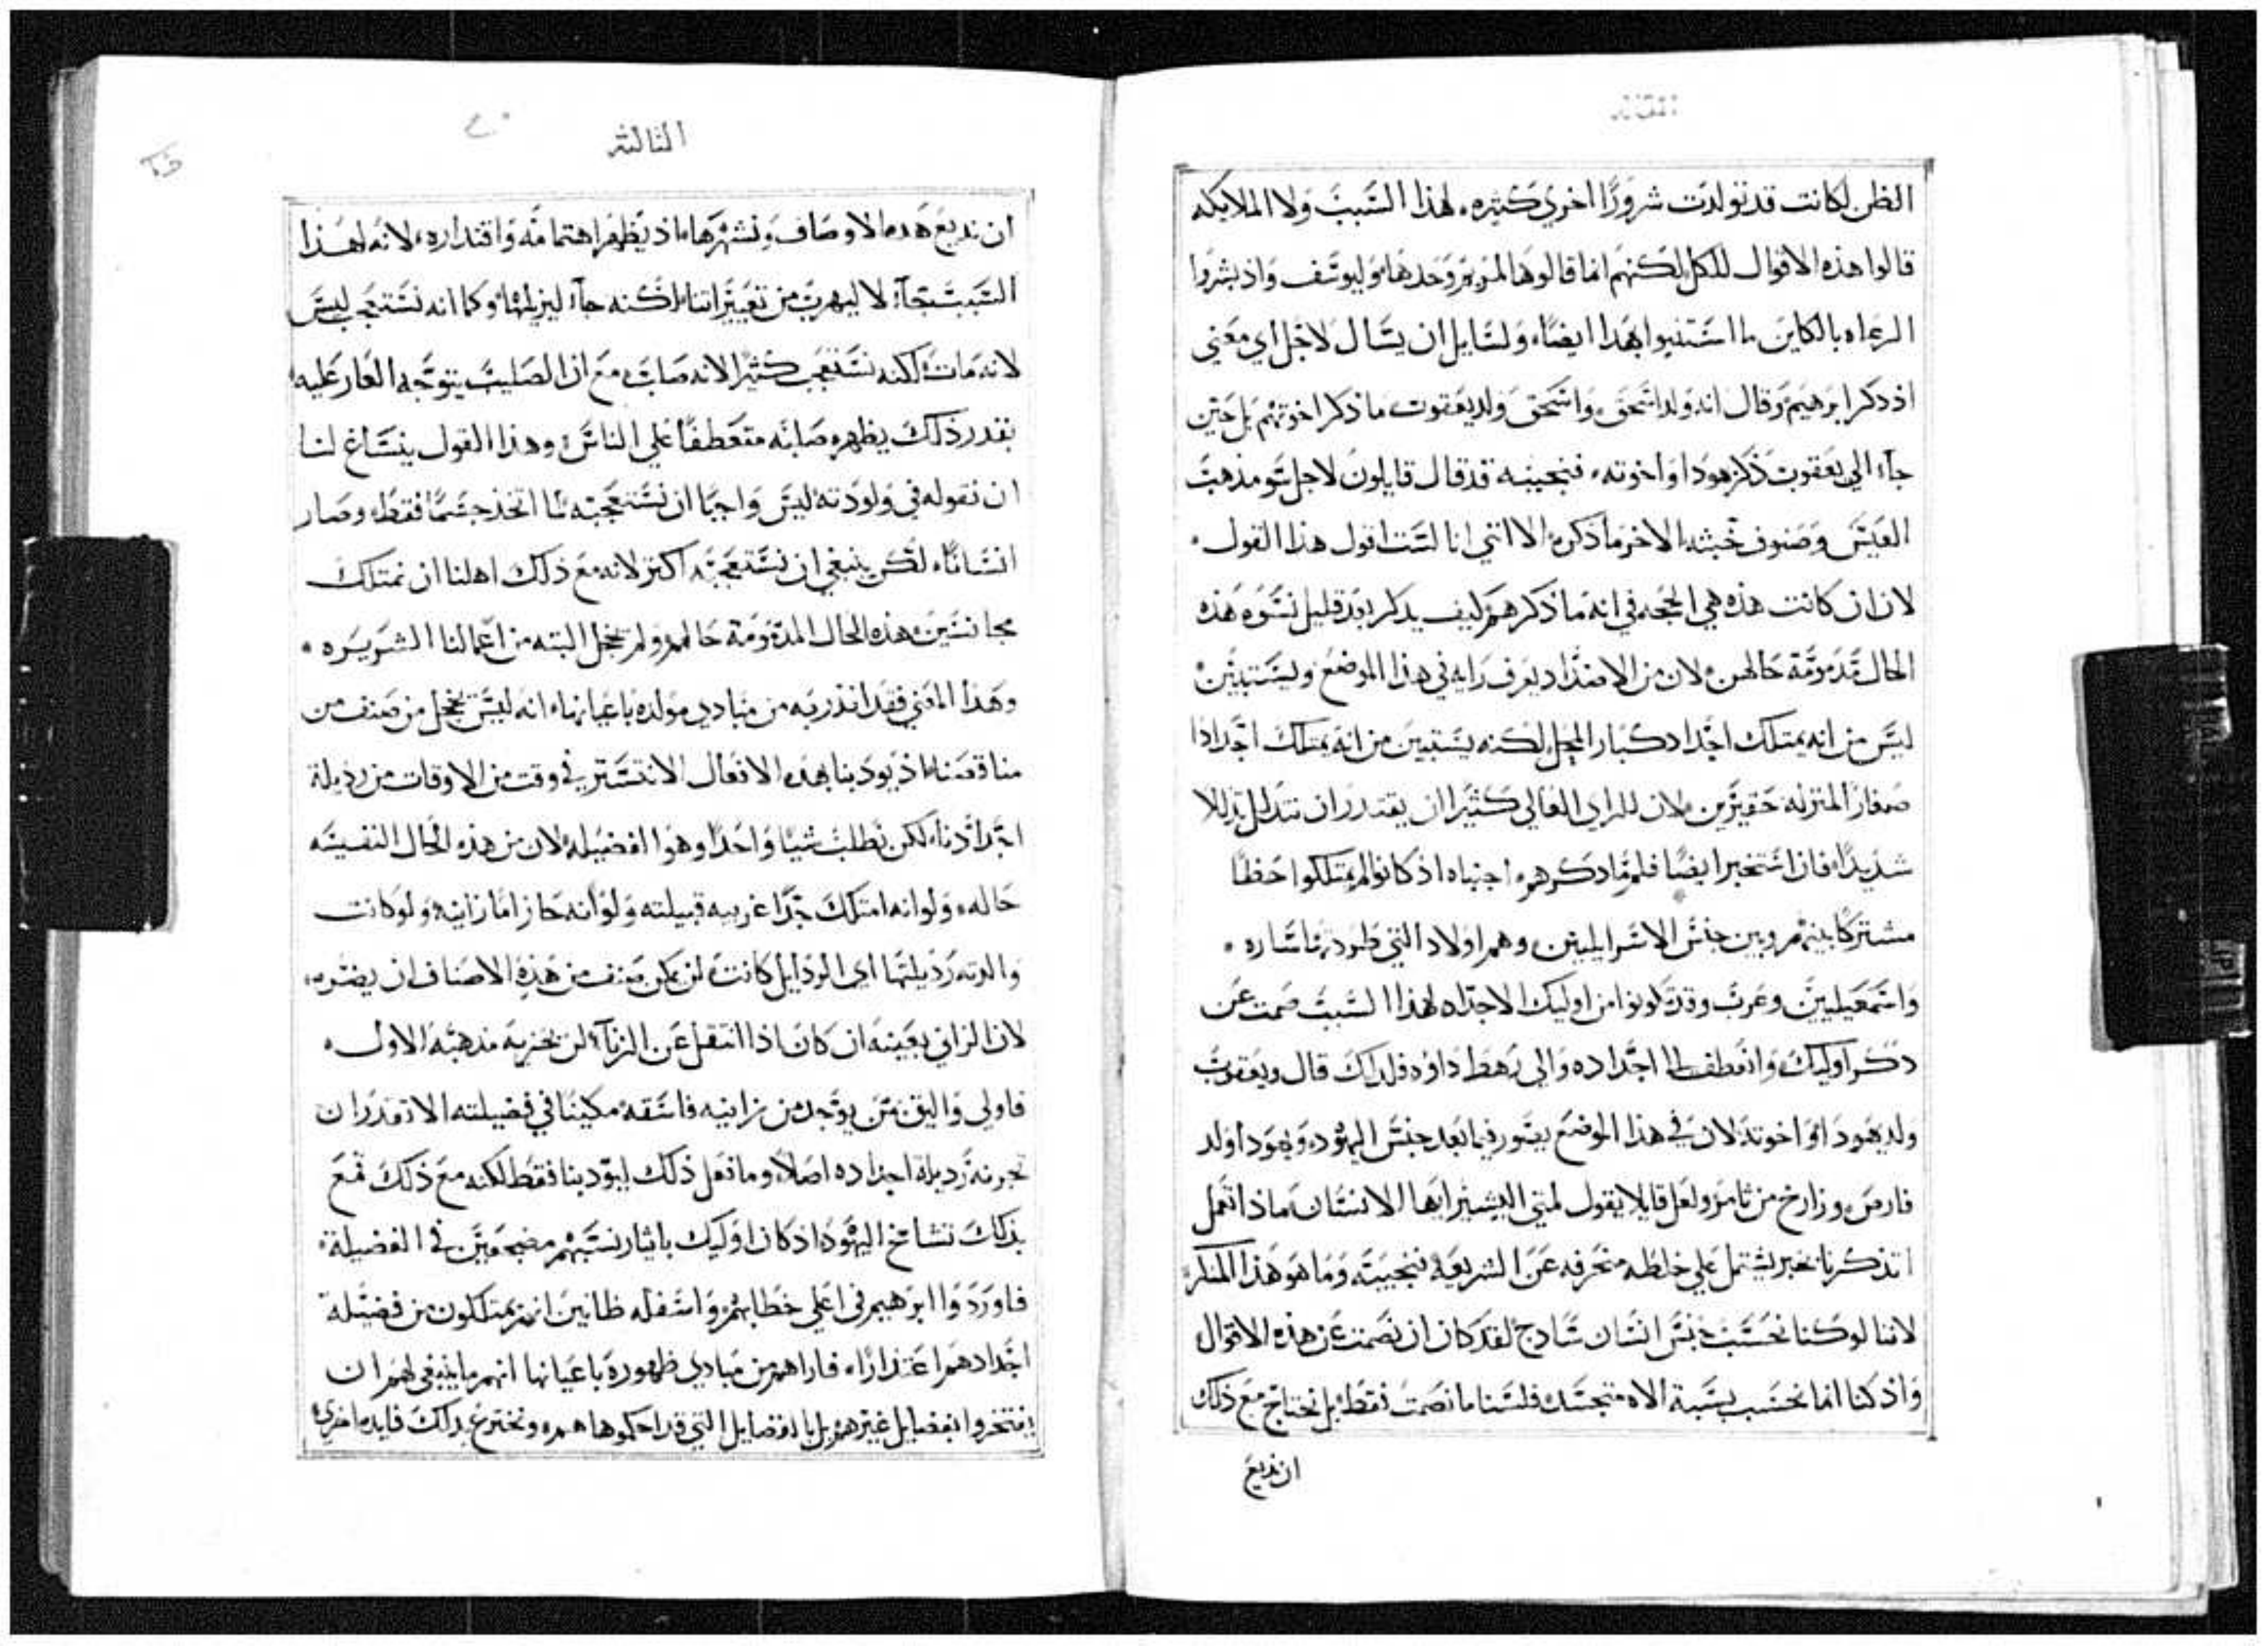 المقاله
الظن لكانت قد تولدت شرورًا اخري كثيره، لهذا السَبب ولا الملايكه
قالوا هذه الاقوال للكل لكنهم انما قالوها لمريم وحدها وليوسَف واذ بشروا
الرعاه بالكاين ما استثنوا بهذا ايضًا، ولسَايل ان يسَال لاجل اي معَني
اذ ذكر ابرهيم وقال انه ولد اسَحق، واسَحق ولد يعَقوب ما ذكر اخوتهم بل حَين
جآء الي يعَقوب ذكر يهودا واخوته، فنجيبه قد قال قايلون لاجل سَو مذهب
العيسَ وصَنوف خبثه الاخر ما ذكره الا انني انا لسَت اقول هذا القول،
لان ان كانت هذه هي الحجه في انه ما ذكرهم كيف يذكر بعَد قليل نسَوه هذه
الحال مَذمومَة حالهن لان من الاضدَاد يعرف رايه في هذا الموضع وليسَ يتبين
ليسَ من انه يمتلك اجَدادًا كبار المحل لكنه يسَتبين من انه يمتلك اجَدادا
صَغار المنزله حَقيرَين لان للراي العَالي كثيرًا ان يقتدر ان يتذلل تذللا
شديدًا، فان اسَتخبر ايضًا فلم مَا ذكرهم، اجبناه اذ كانوا لم يمتلكوا حَظًا
مشتركًا بينهم وبين جنسَ الاسَرايليين وهم اولاد التي طردتها سَاره،
واسَمعَيليين وعَرب وقد تَكونوا من اوليك الاجدَاد، لهذا السَبب صَمت عَن
ذكر اوليك وانعَطف الي اجدَاده والي رهط داود فلذلك قال ويعَقوب
ولد يهودا واخوته لان في هذا الموضع يصَور فيما بعَد جنسَ اليهود، ويهودا ولد
فارص وزارخ من ثامر ولعَل قايلا يقول لمتي البشير ايها الانسَان ماذا تعَمل
اتذكرنا بخبر يشتمل علي خلطه منحرفه عَن الشريعَة فنجيبَه وما هو هذا المنكر
لاننا لو كنا نحسَب جنسَ انسَان سَاذج لقد كان ان نصَمت عَن هذه الاقوال
واذ كنا انما نحسَب نسَبة الاه متجسَد فلسَنا ما نصَمت فقط، بل نحتاج مع ذلك
ان نذيع
الثالثه
ان نذيع هذه الاوصاف ونشهرها اذ يظهر اهتمامَه واقتداره، لانه لهذا
السَبب جآء لا ليهرب من تعَييراتنا لكنه جآء ليزيلها وكما انه نسَتعجب ليسَ
لانه مَات لكنه نسَتعجب كثيرًا لانه صَلب مع ان الصَليب يتوجَه العَار عَليه
بقدر ذلك يظهره صَلبه متعَطفًا علي الناسَ وهذا القول ينسَاغ لنا
ان نقوله في ولودته ليسَ واجبًا ان نسَتعجبه لما اتخذ جسَمًا فقط وصَار
انسَانًا، لكن ينبغي ان نسَتعَجبَه اكثر لانه مع ذلك اهلنا ان نمتلك
مجانسَين هذه الحال المذمومَة حَالهم ولم يخجل البته من اعَمالنا الشريره،
وهذا المعَني فقد انذر به من مبادي مولده باعيانها، انه ليسَ يخجل من صَنف من
مناقصنا، اذ يودبنا بهذه الافعَال الا نتسَتر في وقت من الاوقات من رذيلة
اجدَادنا، لكن نطلب شيًا واحدًا وهو الفضيله لان من هذه الحَال النفيسَه
حَاله، ولو انه امتلك جدًا غريبه قبيلته ولو انه حَاز امًا زانيه، ولو كانت
والدته رذيلتها اي الرذايل كانت لن يمكن صَنف من هَذه الاصَناف ان يضره،
لان الزاني بعَينه ان كان اذا انتقل عَن الزنآء لن يخزيه مذهبَه الاول،
فاولي واليق بمَن يوجد من زانيه فاسَقه مكينًا في فضيلته الا تقدر ان
تحزنه رذيلة اجدَاده اصَلًا، وما فعَل ذلك ليودبنا فقط لكنه مع ذلك قمع
بذلك تشامخ اليهود اذ كان اوليك بايثار نسَبهم مضجعَين في الفضيلة
فاوردوا ابرهيم في اعلي خطابهم واسَفله ظانين انهم يمتلكون من فضيلة
اجدَادهم اعَتذارًا، فاراهم من مبادي ظهوره باعَيانها انهم ما ينبغي لهم ان
يفتخروا بفضايل غيرهم بل بالفضايل التي قد احكموها هم ونخترع بذلك فايده اخري